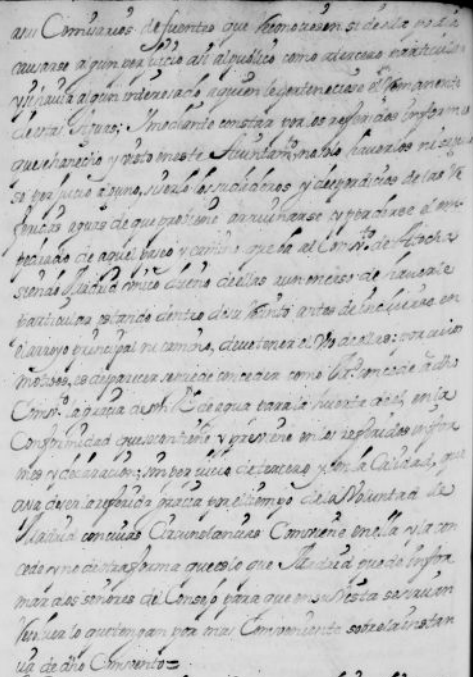 a sus Comisarios de fuentes que Reconociesen si de ella podia
causarse algun perjuicio asi al publico como a tercero particular
y si havia algun interesado a quien le perteneciese el Remanente
de estas Aguas; Y mediante constar por los referidos Informes
que se han echo y visto en este Ayuntamto, no solo haverlos ni
se perjuicio alguno, ser los sudaderos y desperdicios de las Re
feridas aguas de que proviene arruinarse y perderse el em
pedrado de aquel paseo y camino que ba al Convto de Atocha
siendo Madrid unico dueño de ellas aun en caso de haverle
particular estando dentro de su antes de incluirse en
el arroyo principal ni camino, deve tener el Uso de ellas: por cuios
motivos, es de parecer se puede conceder como concede a dho
Convto la gracia de Rl de agua para la huerta de el, en la
Conformidad que se contiene y previene en los referidos infor
mes y declaracion, sin perjuicio de tercero y con la Calidad, que
aya de ser la referida gracia por el tiempo de la Voluntad de
Madrid con cuias Circunstancias Conviene en ella y la con
cede y no de otra forma que es lo que Madrid puede Infor
mar a los señores del Consejo para que en su Vista se sirvan
Resolver lo que tengan por mas Conveniente sobre la instan
cia de dho Convento=